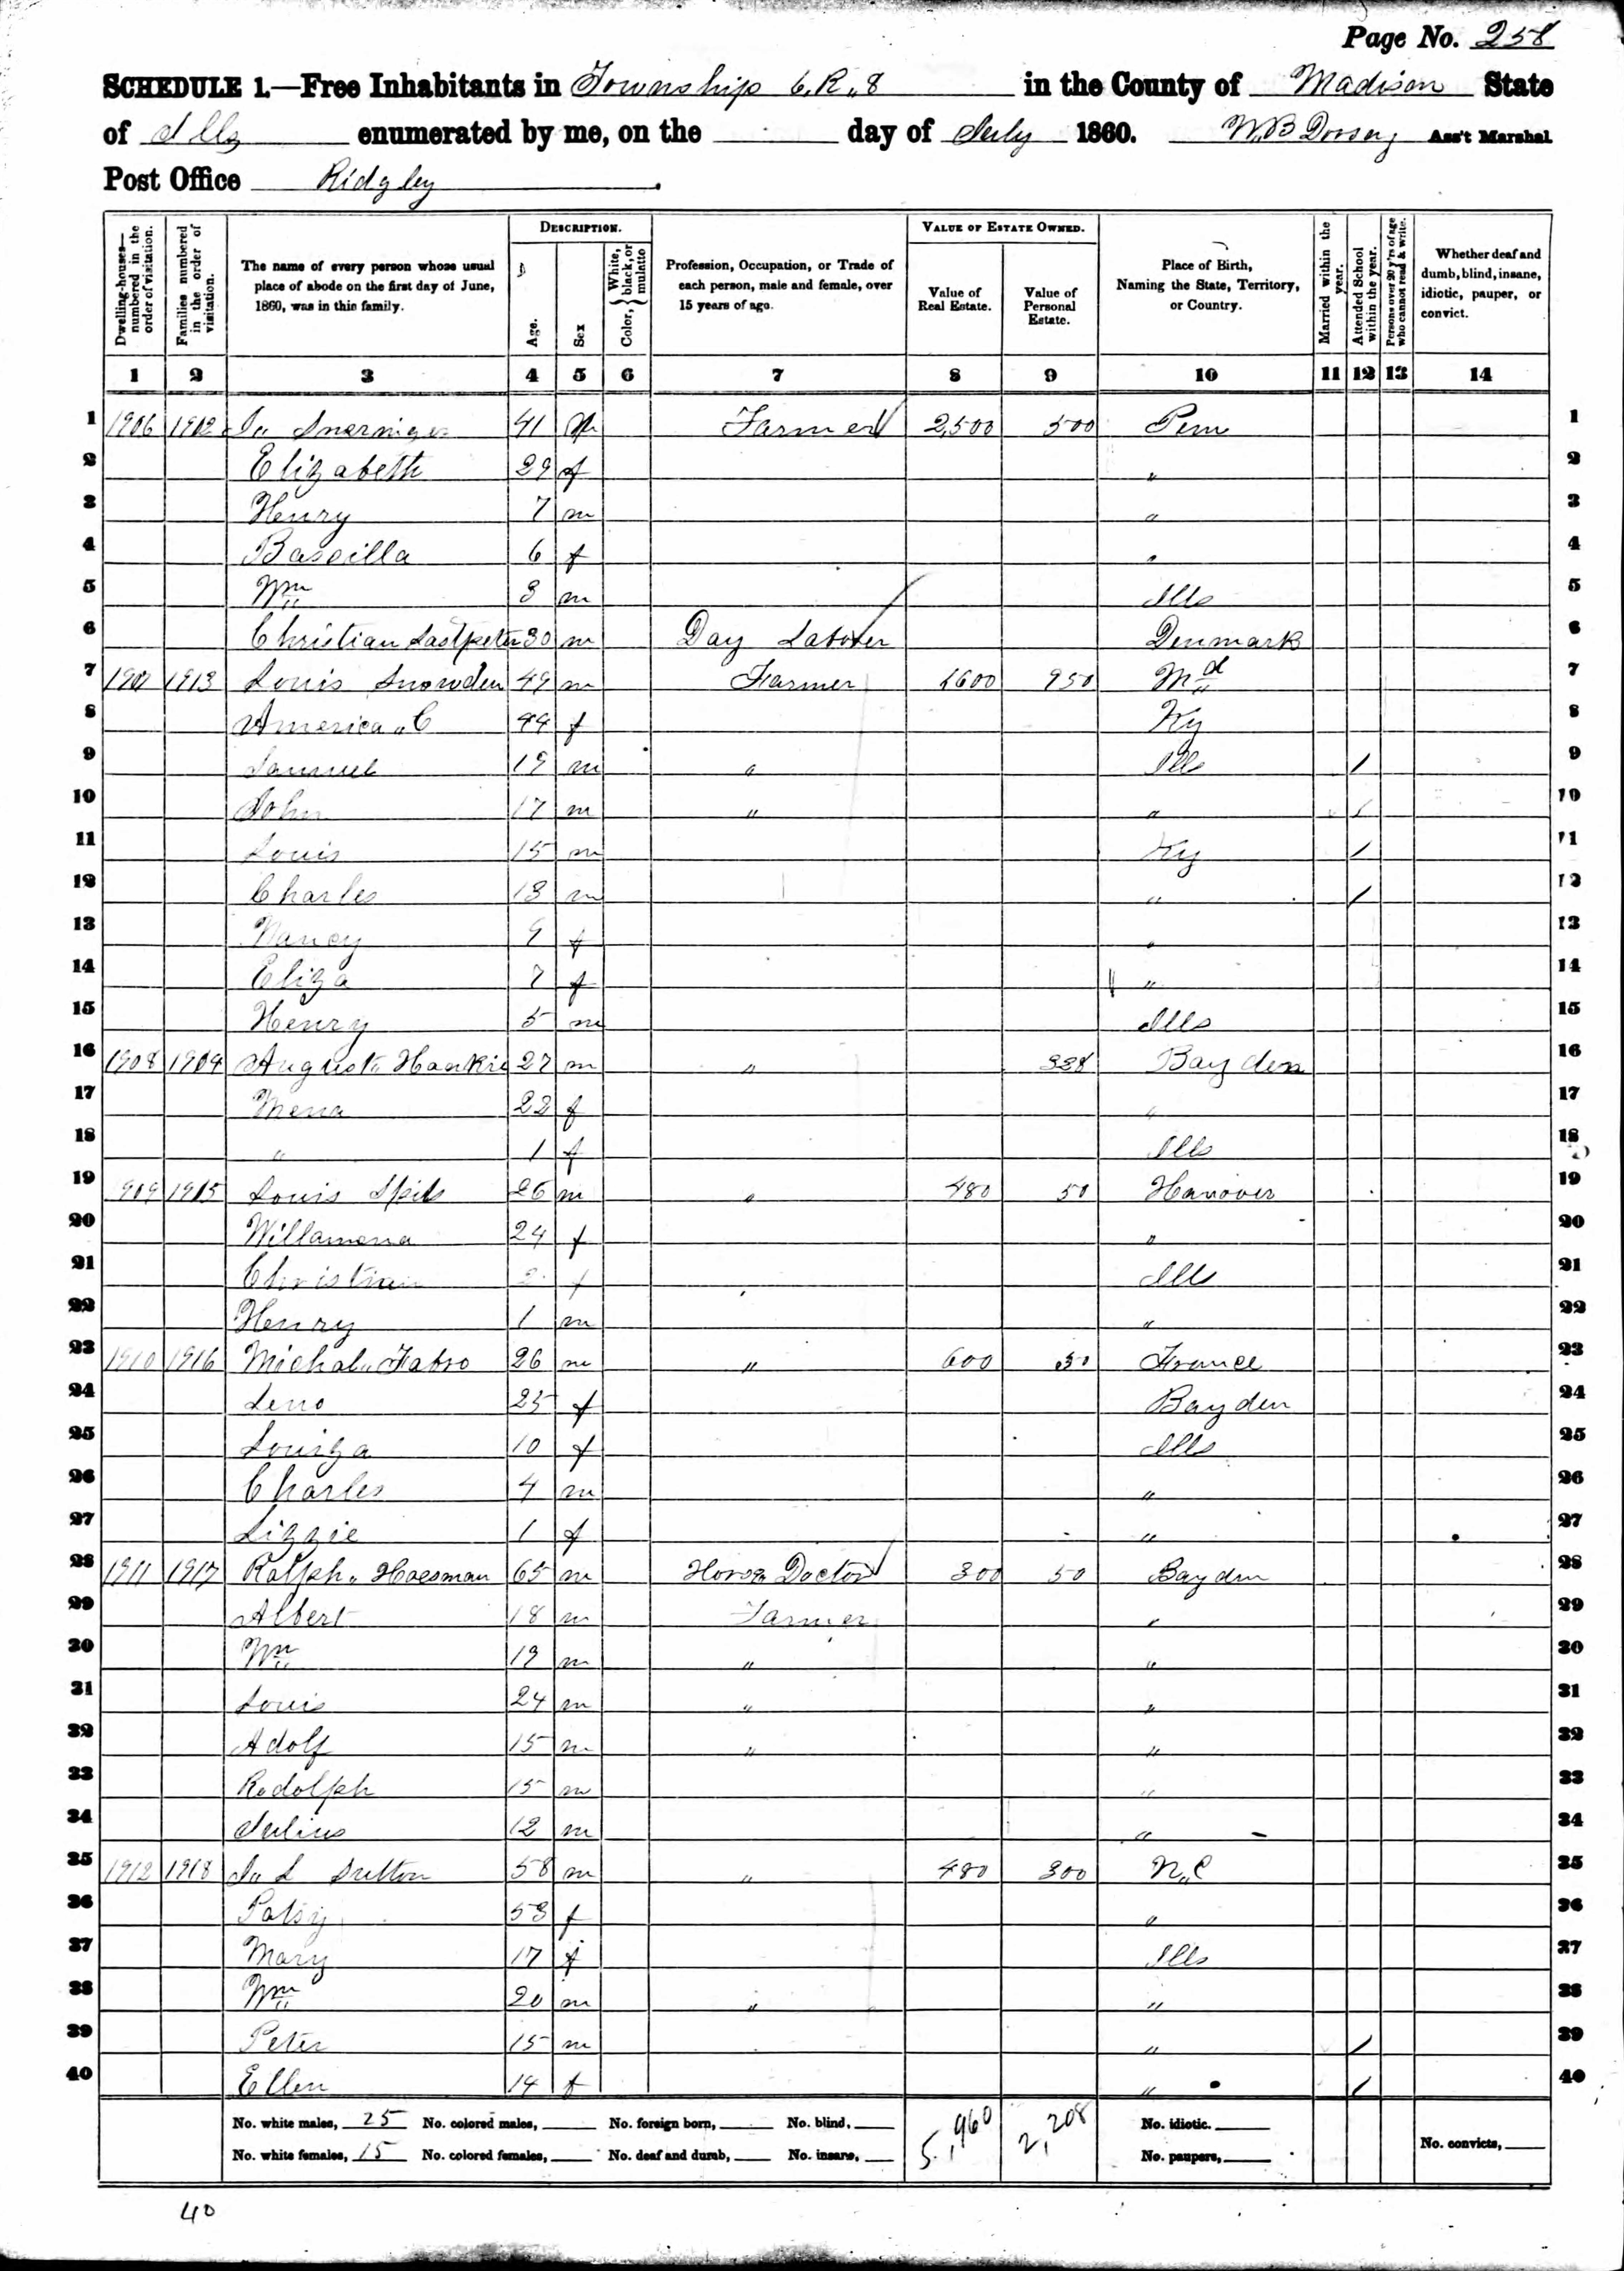 Page No. 258
SCHEDULE 1.—Free Inhabitants in Township 6, R,, 8 in the County of Madison State
of Ills enumerated by me, on the day of July 1860. W.B Dorsey Ass't Marshal.
Post Office Ridgley.
Dwelling-houses—numbered in the order of visitation.
Families numbered in the order of visitation.
The name of every person whose usual place of abode on the first day of June, 1860, was in this family.
DESCRIPTION.
Age.
Sex
Color, { White, black, or mulatto
Profession, Occupation, or Trade of each person, male and female, over 15 years of age.
VALUE OF ESTATE OWNED.
Value of Real Estate.
Value of Personal Estate.
Place of Birth, Naming the State, Territory, or Country.
Married within the year.
Attended School within the year.
Persons over 20 y'rs of age who cannot read & write.
Whether deaf and dumb, blind, insane, idiotic, pauper, or convict.
1 2 3 4 5 6 7 8 9 10 11 12 13 14
1 1906 1902 41 m Farmer 2,500 500 1
2 Elizabeth 29 f " 2
3 Henry 7 m " 3
4 Bascilla 6 f " 4
5 Wm 3 m Ills 5
6 Christian 30 m Day Laborer Denmark 6
7 1907 1913 Louis Snowden 49 m Farmer 1600 950 Md 7
8 America,, C 44 f Ky 8
9 Samuel 19 m " Ills / 9
10 John 17 m " " / 10
11 Louis 15 m Ky / 11
12 Charles 13 m " / 12
13 Nancy 9 f " 13
14 Eliza 7 f " 14
15 Henry 5 m Ills 15
16 1908 1904 August,, 27 m " 328 Bayden 16
17 Mena 22 f " 17
18 " 1 f Ills 18
19 1909 1915 Louis Speils 26 m " 480 50 Hanover 19
20 Willamena 24 f " 20
21 Christian 2 f Ills 21
22 Henry 1 m " 22
23 1910 1916 Michal,, Fabro 26 m " 600 50 France 23
24 Leno 25 f Bayden 24
25 Louiza 10 f Ills 25
26 Charles 4 m " 26
27 Lizzie 1 f " 27
28 1911 1917 Ralph,, Hoesman 65 m Horse Doctor 300 50 Bayden 28
29 Albert 18 m Farmer " 29
30 Wm 19 m " " 30
31 Louis 24 m " " 31
32 Adolf 15 m " " 32
33 Rodolph 15 m " 33
34 Julius 12 m " 34
35 1912 1918 J,, L Sutton 58 m " 480 300 N,,C 35
36 Patsy 53 f " 36
37 Mary 17 f Ills 37
38 Wm 20 m " " 38
39 Peter 15 m " / 39
40 Ellen 14 f " / 40
No. white males, 25 No. colored males, No. foreign born, No. blind, 5,960 2,208 No. idiotic.
No. white females, 15 No. colored females, No. deaf and dumb, No. insane, No. paupers, No. convicts,
40